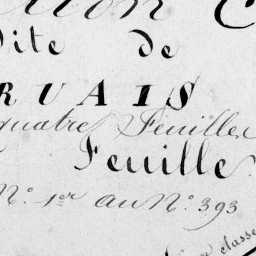 dite de
RVAIS
quatre Feuilles
Feuille
N.º 1.er au N.º 393
classe